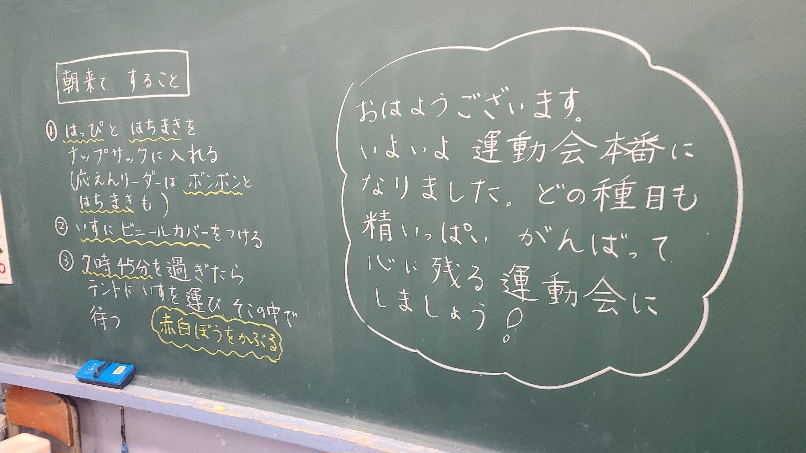 朝来て すること
① はっぴと はちまきを
ナップサックに入れる
(応えんリーダーは ボンボンと
はちまきも)
② いすにビニールカバーをつける
③ 7時45分を過ぎたら
テントにいすを運び そこの中で
待つ
赤白ぼうをかぶる
おはようございます。
いよいよ 運動会本番に
なりました。どの種目も
精いっぱい がんばって
心に残る運動会に
しましょう!